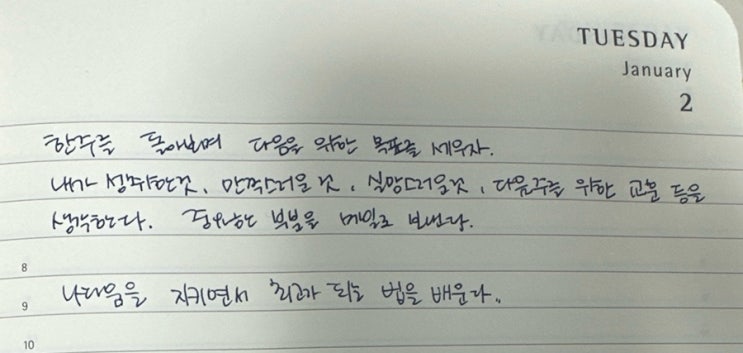 TUESDAY
January
2
한주를 돌아보며 다음을 위한 목표를 세우자.
내가 성취한것, 만족스러운 것, 실망스러운것, 다음주를 위한 교훈 등을
생각한다. 중요한 부분을 메일로 보낸다.
8
9 나다움을 지키면서 최고가 되는 법을 배운다.
10